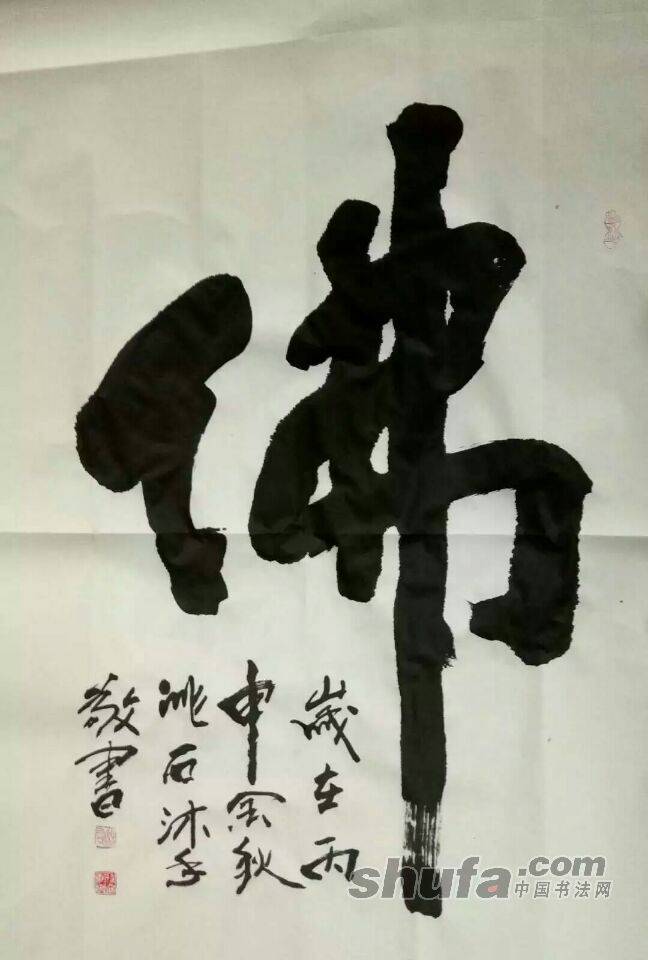 佛
歲在丙
申金秋
洮石沐手
敬書
shufa.com
中国书法网